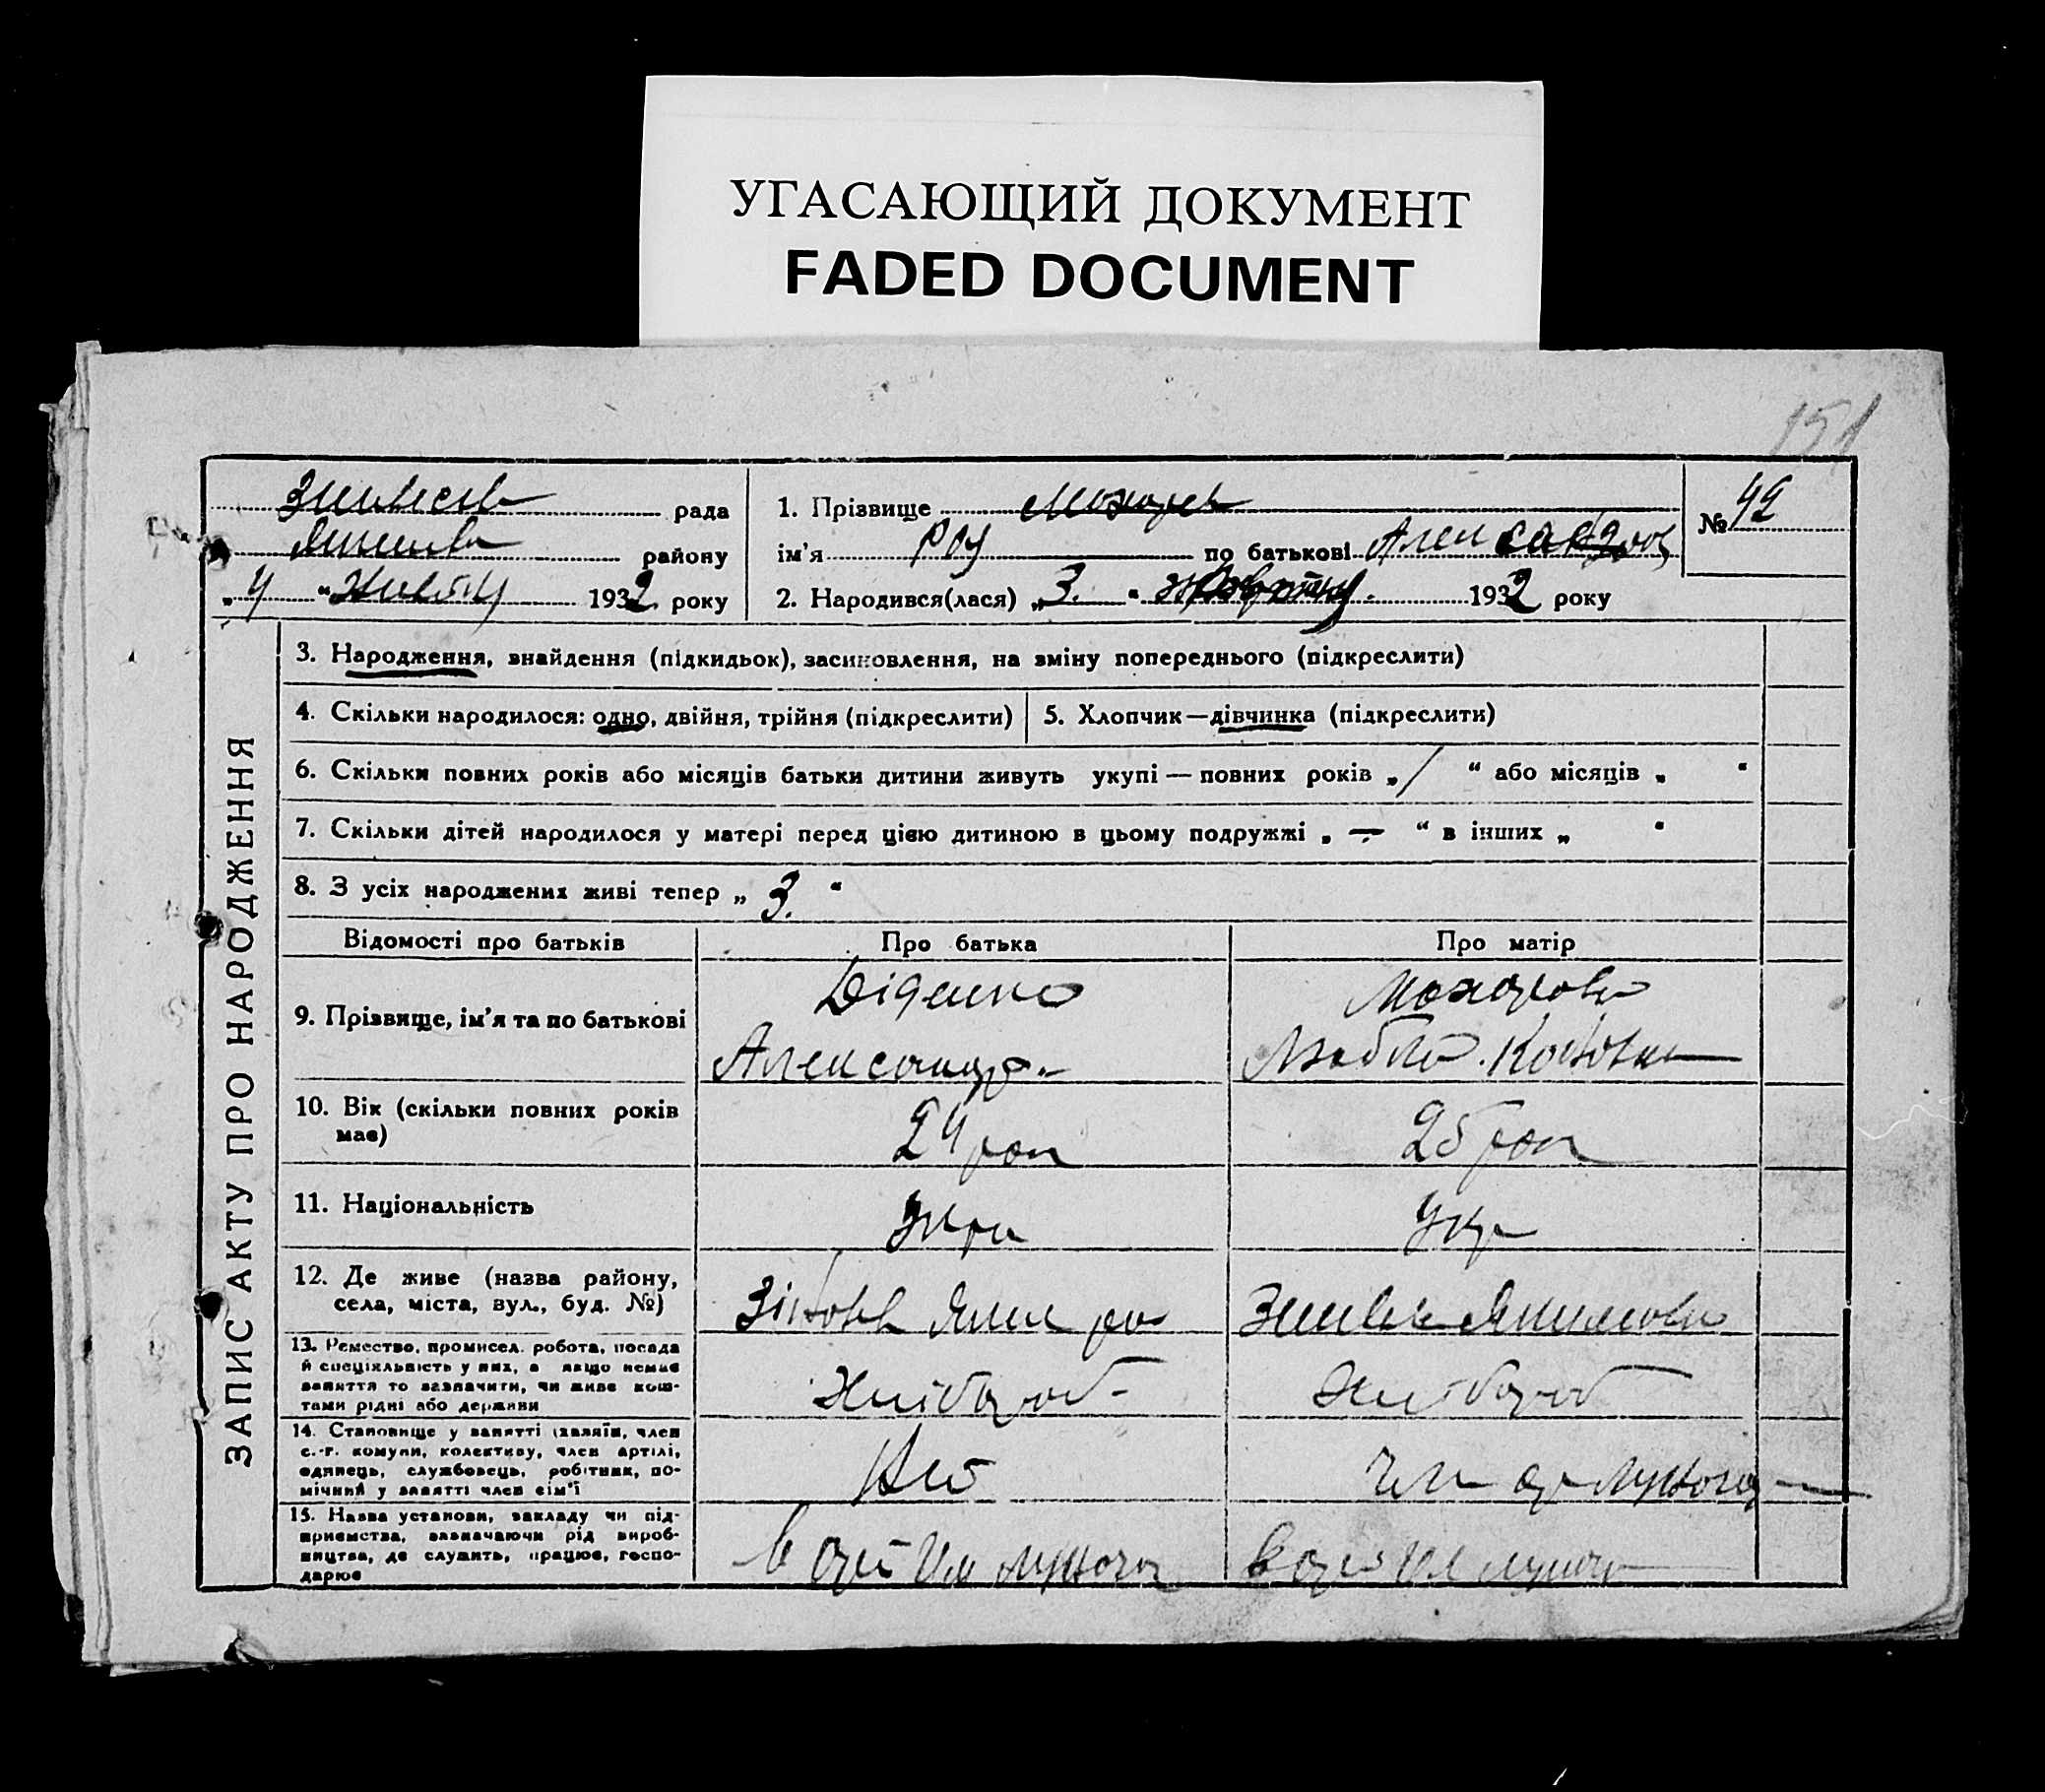 УГАСАЮЩИЙ ДОКУМЕНТ
FADED DOCUMENT
151
рада
району
„ 4 “ 1932 року
1. Прізвище
ім’я по батькові
2. Народився(лася) „ 3. “ жовтня. 1932 року
№ 42
ЗАПИС АКТУ ПРО НАРОДЖЕННЯ
3. Народження, знайдення (підкидьок), засиновлення, на зміну попереднього (підкреслити)
4. Скільки народилося: одно, двійня, трійня (підкреслити)
5. Хлопчик—дівчинка (підкреслити)
6. Скільки повних років або місяців батьки дитини живуть укупі — повних років „ / “ або місяців „ “
7. Скільки дітей народилося у матері перед цією дитиною в цьому подружжі „ — “ в інших „ “
8. З усіх народжених живі тепер „ 3. “
Відомості про батьків
Про батька
Про матір
9. Прізвище, ім’я та по батькові
Діденко
Александр.
10. Вік (скільки повних років
має)
24 рок
25 рок
11. Національність
Укра
Укр
12. Де живе (назва району,
села, міста, вул., буд. №)
13. Ремество, промисел, робота, посада
й спеціяльність у них, а якщо немає
заняття то зазначити, чи живе кош-
тами рідні або держави
Хлібороб
Хлібороб
14. Становище у занятті (хазяїн, член
с.-г. комуни, колективу, член артілі,
одинець, службовець, робітник, по-
мічний у занятті член сім’ї
15. Назва установи, закладу чи під-
приємства, зазначаючи рід вироб-
ництва, де служить, працює, госпо-
дарює